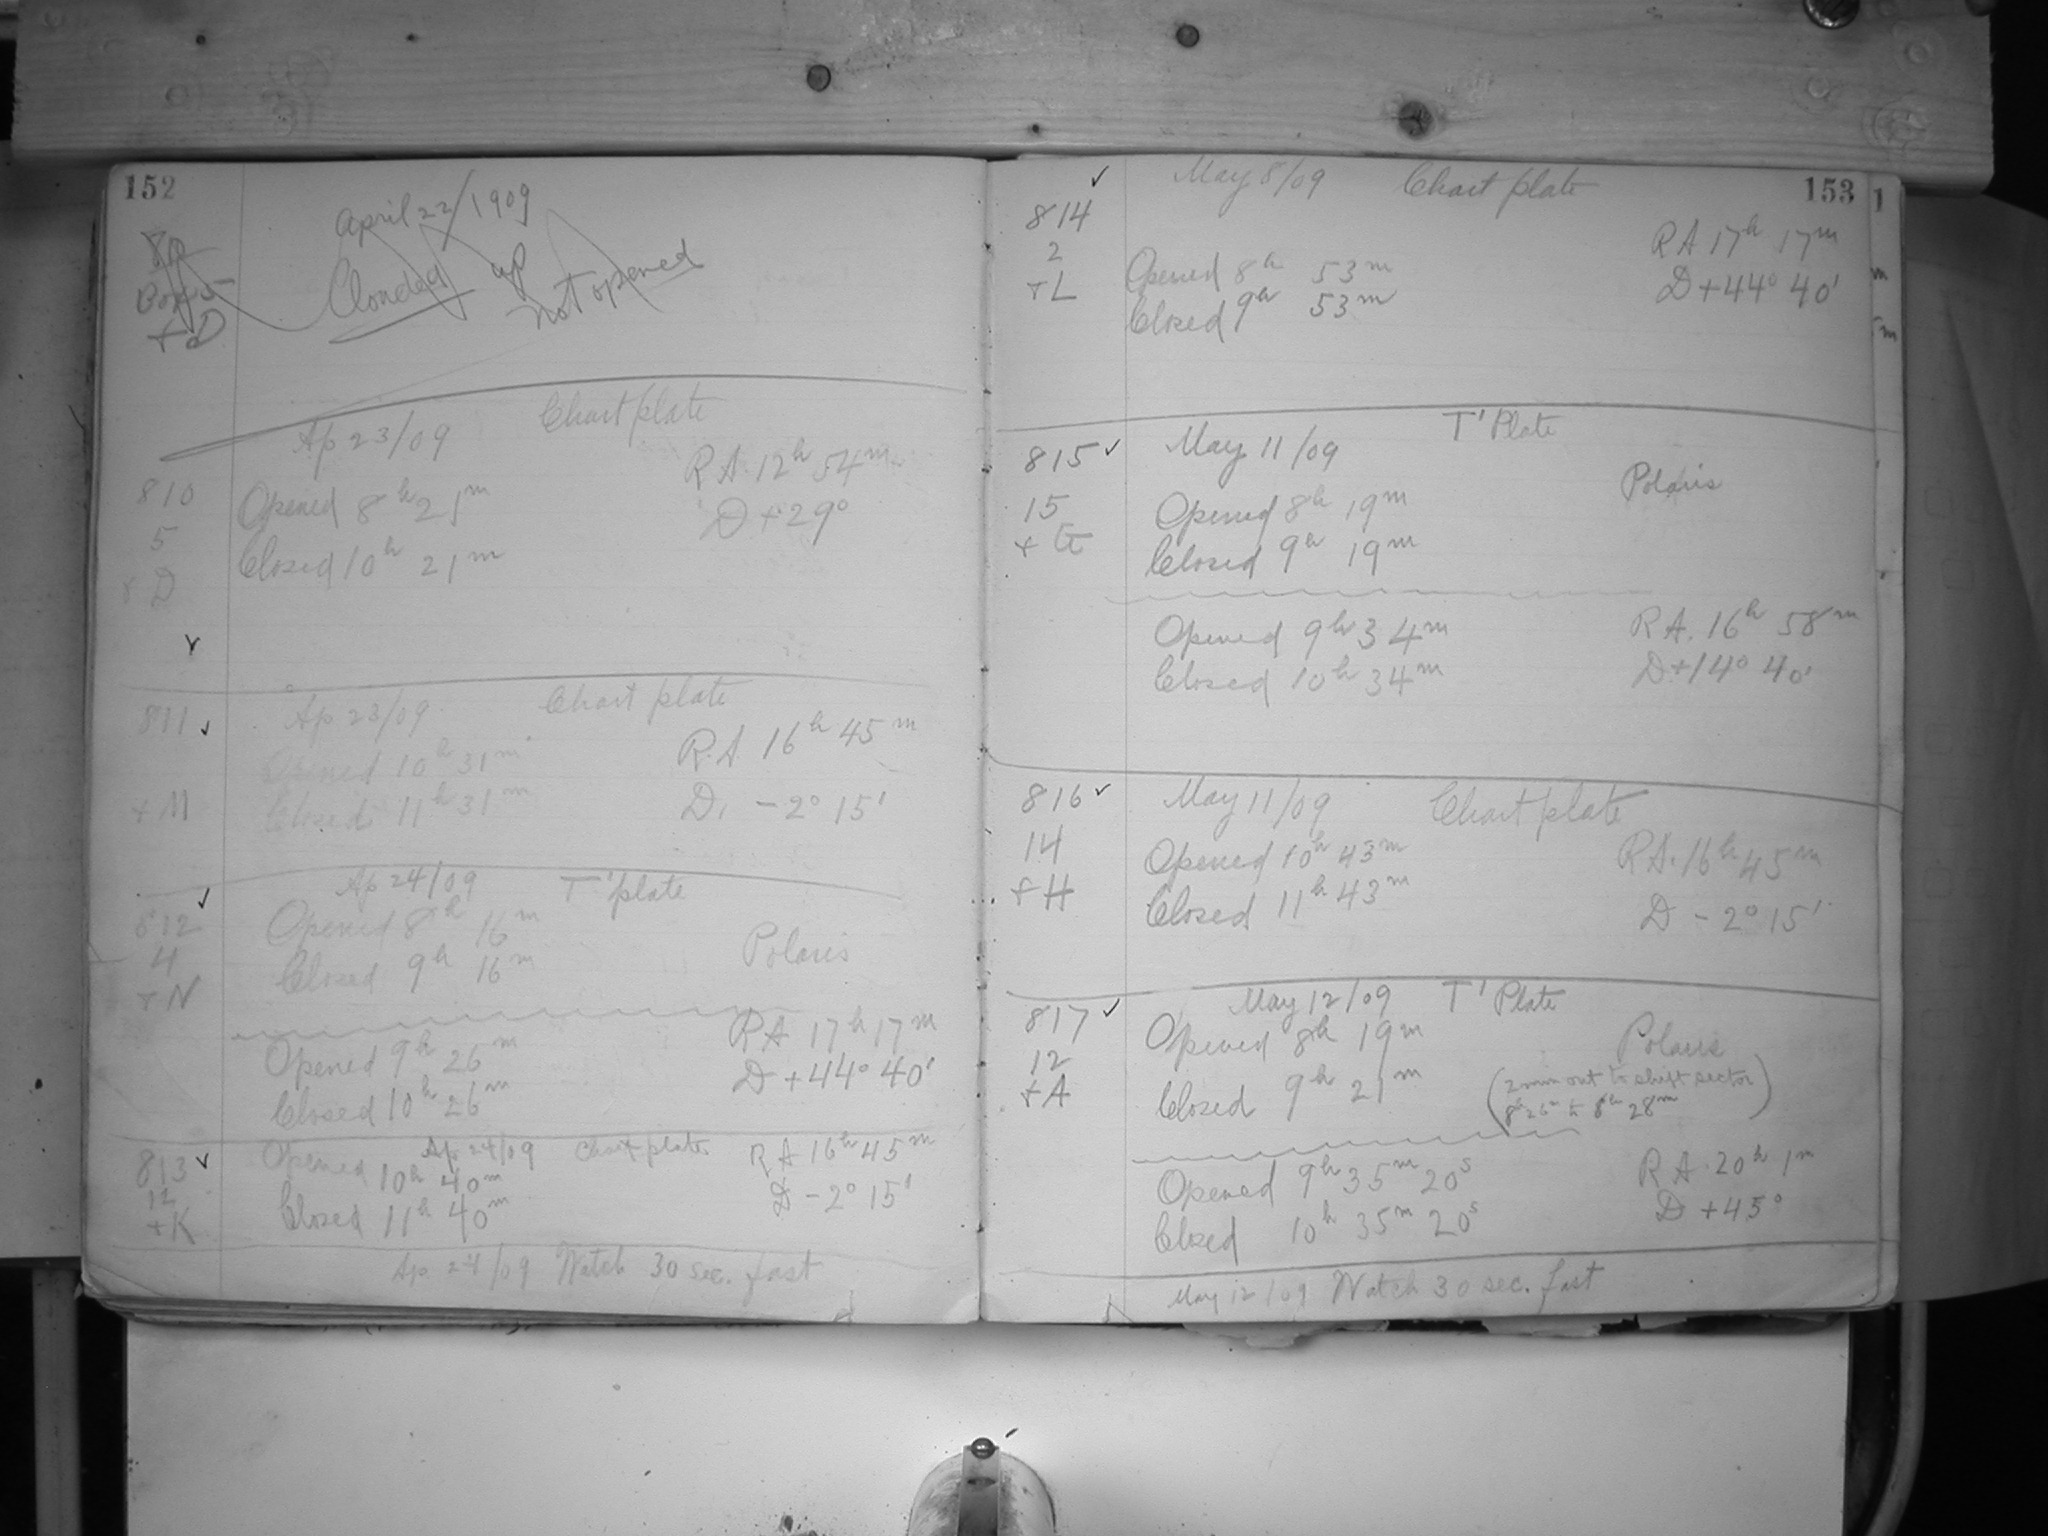 152
April 22/1909
Box 5
+ D
Clouded up
Not opened
Ap 23/09 Chart plate
810
5
+ D
Opened 8h 21m
Closed 10h 21m
RA 12h 54m
D +29°
811
+ M
Ap 23/09 Chart plate
Opened 10h 31m
Closed 11h 31m
R.A. 16h 45m
D. -2° 15'
812
4
+ N
Ap 24/09 T' plate
Opened 8h 16m
Closed 9h 16m
Polaris
Opened 9h 26m
Closed 10h 26m
RA 17h 17m
D +44° 40'
813
12
+ K
Ap 24/09 Chart plate
Opened 10h 40m
Closed 11h 40m
RA 16h 45m
D -2° 15'
Ap 24/09 Watch 30 sec. fast
153
May 8/09 Chart plate
814
2
+ L
Opened 8h 53m
Closed 9h 53m
RA 17h 17m
D +44° 40'
815
15
+ G
May 11/09 T' Plate
Opened 8h 19m
Closed 9h 19m
Polaris
Opened 9h 34m
Closed 10h 34m
RA. 16h 58m
D +14° 40'
816
14
+ H
May 11/09 Chart plate
Opened 10h 43m
Closed 11h 43m
RA. 16h 45m
D -2° 15'
817
12
+ A
May 12/09 T' Plate
Opened 8h 19m
Closed 9h 21m
Polaris
(2 min out to shift sector
8h 26m to 8h 28m)
Opened 9h 35m 20s
Closed 10h 35m 20s
RA 20h 1m
D +45°
May 12/09 Watch 30 sec. fast